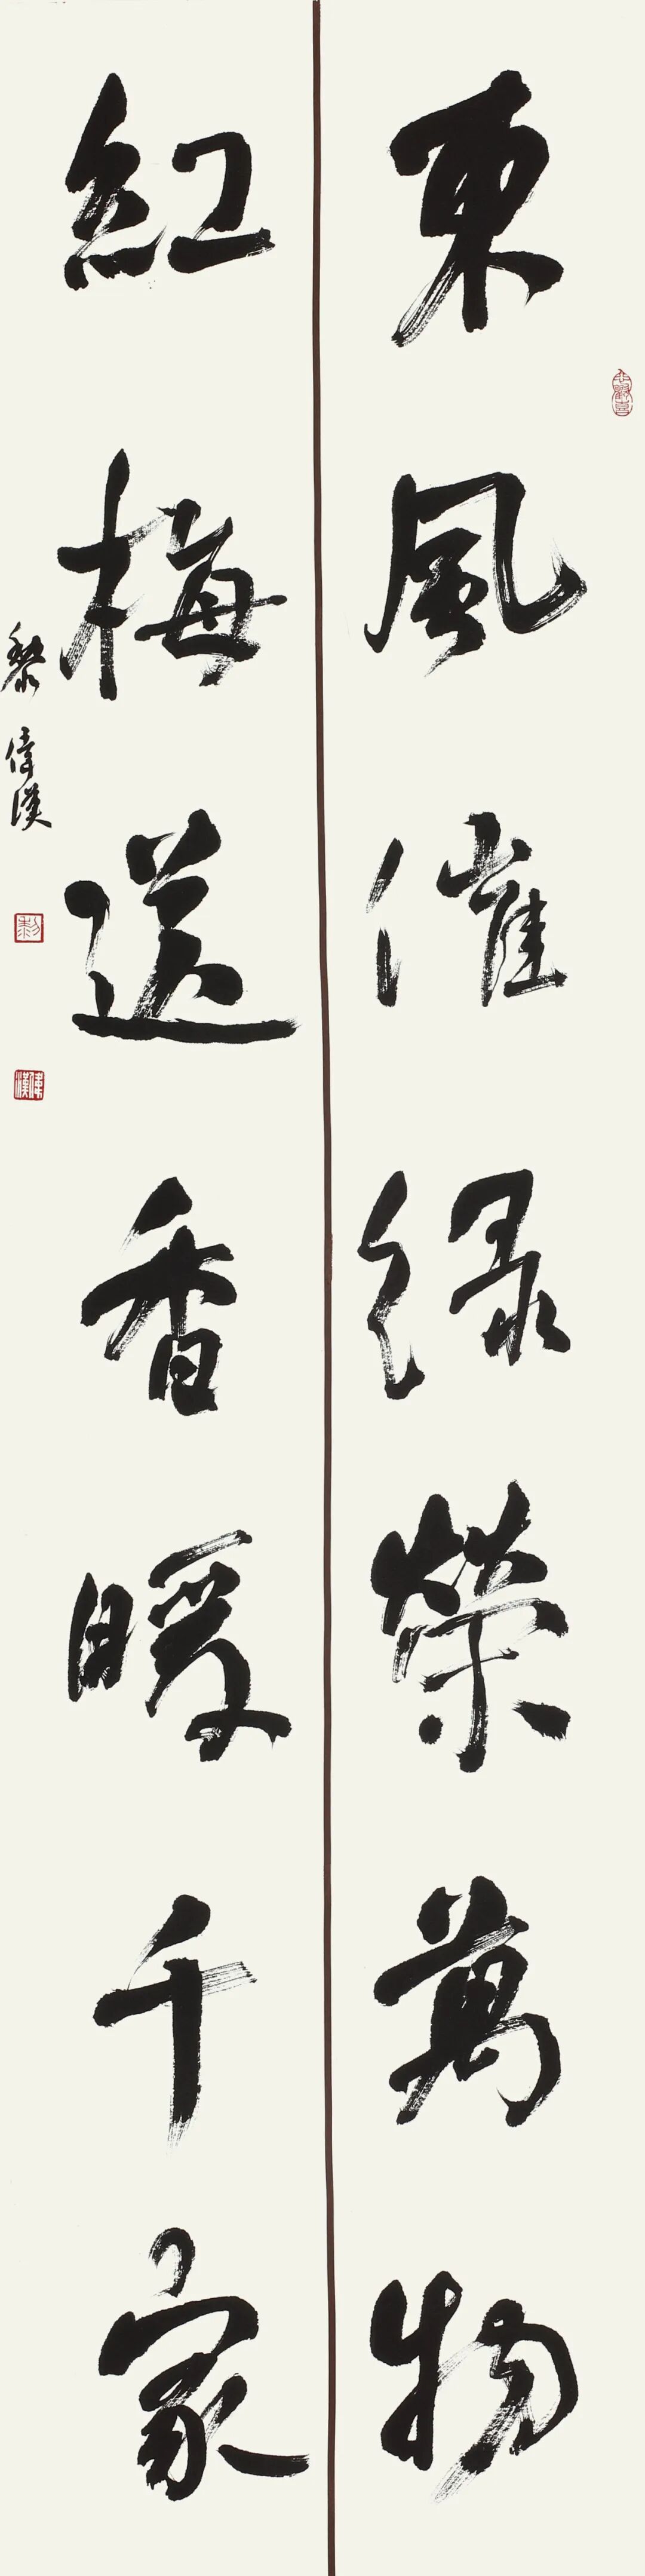 東風催緑榮萬物
紅梅送香暖千家
黎偉漢
黎
偉漢